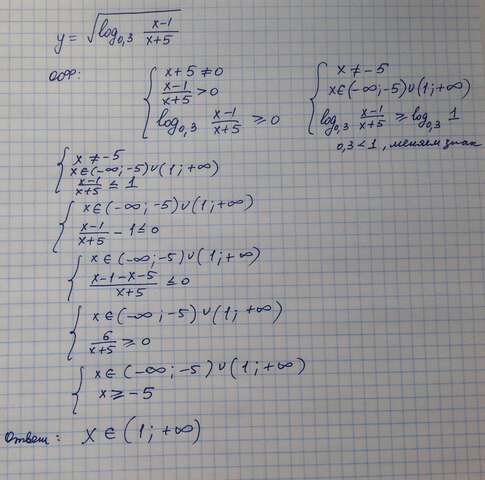 y = √(log₀,₃ (x-1)/(x+5))
ООФ: { x+5 ≠ 0
(x-1)/(x+5) > 0
log₀,₃ (x-1)/(x+5) ≥ 0
{ x ≠ -5
x∈(-∞;-5)∪(1;+∞)
log₀,₃ (x-1)/(x+5) ≥ log₀,₃ 1
0,3 < 1, меняем знак
{ x ≠ -5
x∈(-∞;-5)∪(1;+∞)
(x-1)/(x+5) ≤ 1
{ x∈(-∞;-5)∪(1;+∞)
(x-1)/(x+5) - 1 ≤ 0
{ x∈(-∞;-5)∪(1;+∞)
(x-1-x-5)/(x+5) ≤ 0
{ x∈(-∞;-5)∪(1;+∞)
6/(x+5) ≥ 0
{ x∈(-∞;-5)∪(1;+∞)
x ≥ -5
Ответ: x∈(1;+∞)